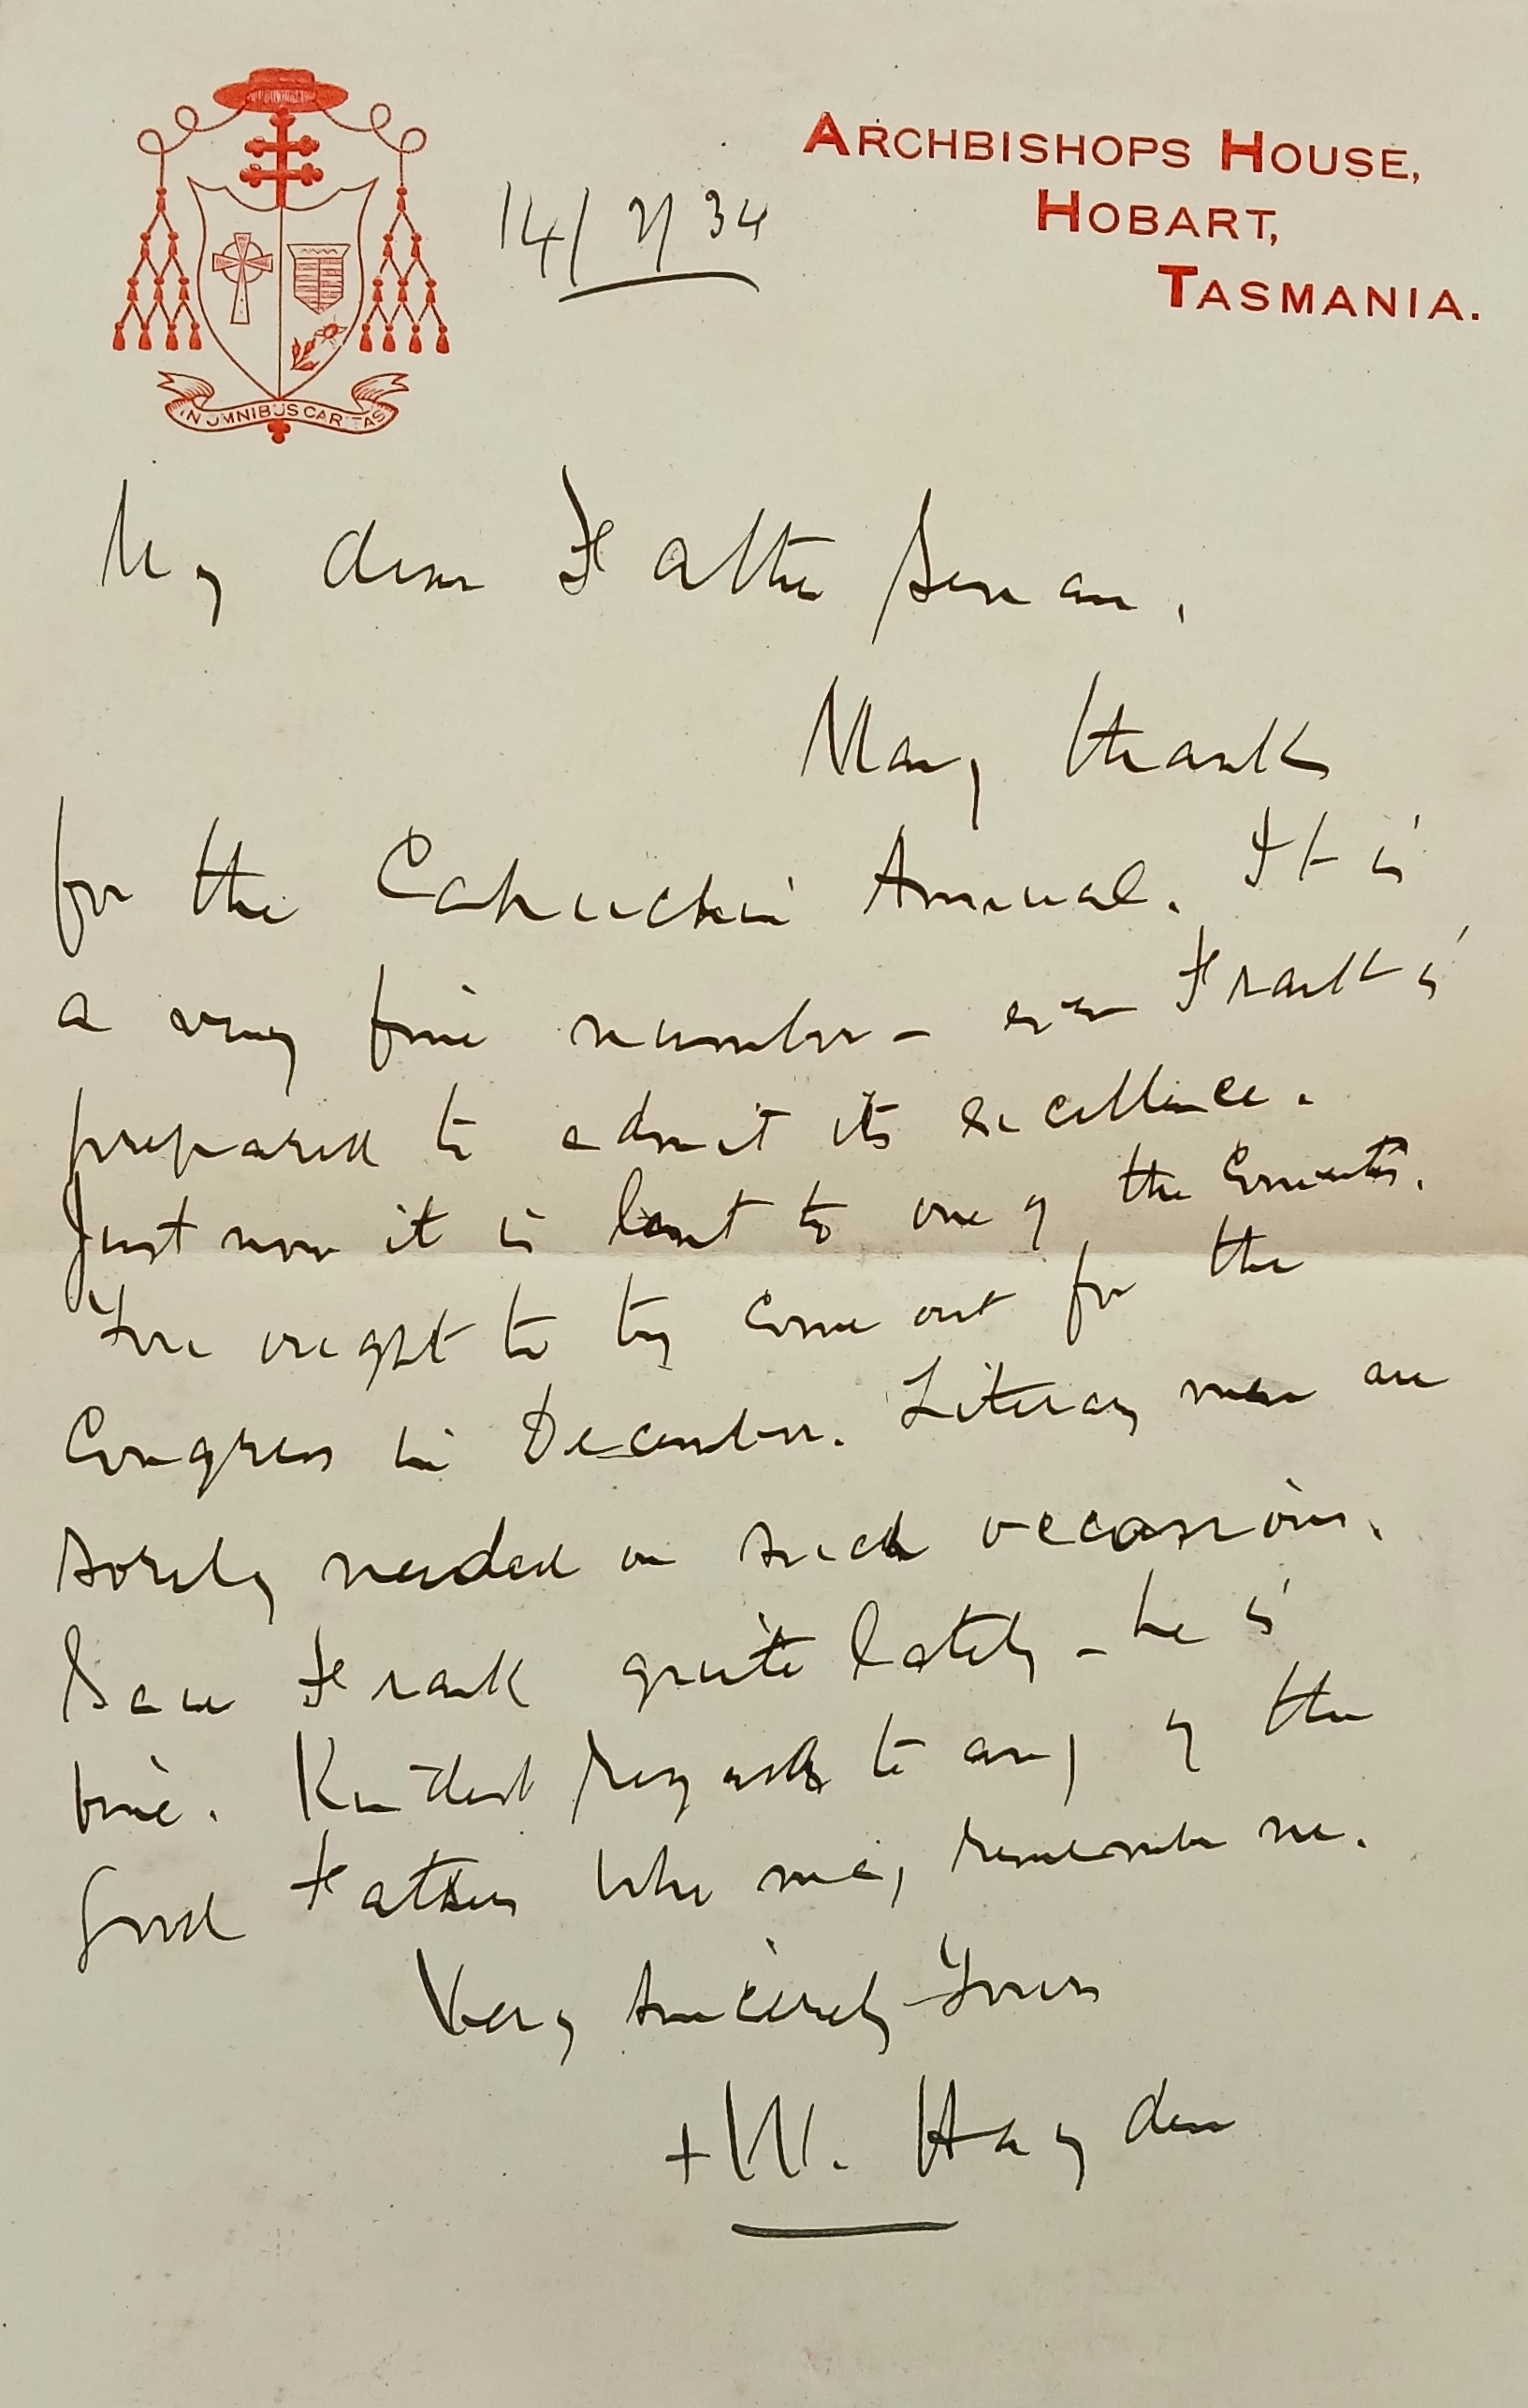 ARCHBISHOPS HOUSE,
HOBART,
TASMANIA.
14/7/34
IN OMNIBUS CARITAS
My dear Father Senan,
Many thanks
for the Capuchin Annual. It is
a very fine number – even Frank is
prepared to admit its excellence.
Just now it is lent to one of the Convents.
You ought to try come out for the
Congress in December. Literary men are
sorely needed on such occasions.
Saw Frank quite lately – he is
fine. Kindest regards to any of the
good Fathers who may remember me.
Very sincerely Yours
+ W. Hayden